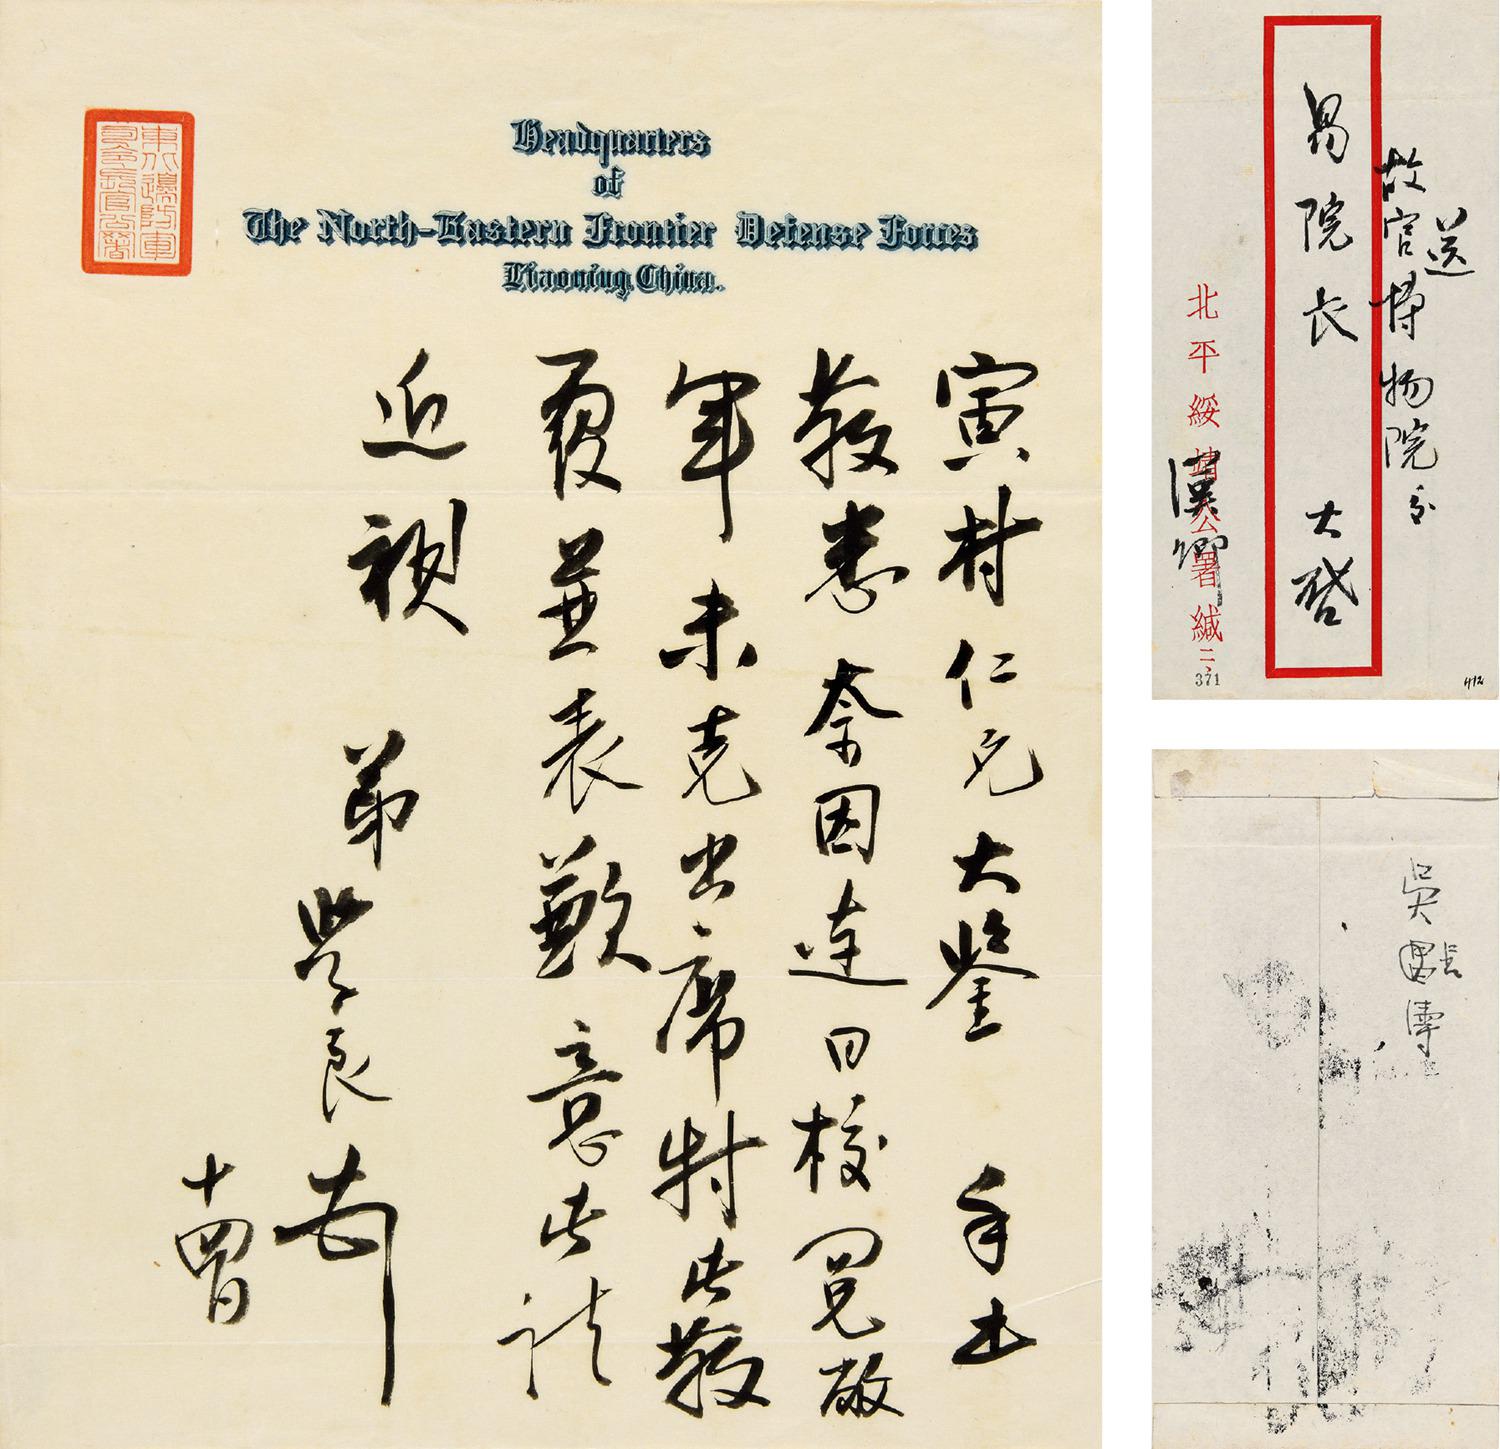 東北邊防軍
司令長官公署
Headquarters
of
The North-Eastern Frontier Defense Forces
Liaoning, China.
寅村仁兄大鑒 手書
敬悉奈因連日校閱敝
軍未克出席特此敬
覆並表歉意此請
近祺 弟學良
十四日
送
故宮博物院
易院長 大啟
北平綏靖公署緘
漢卿
371
吳團長